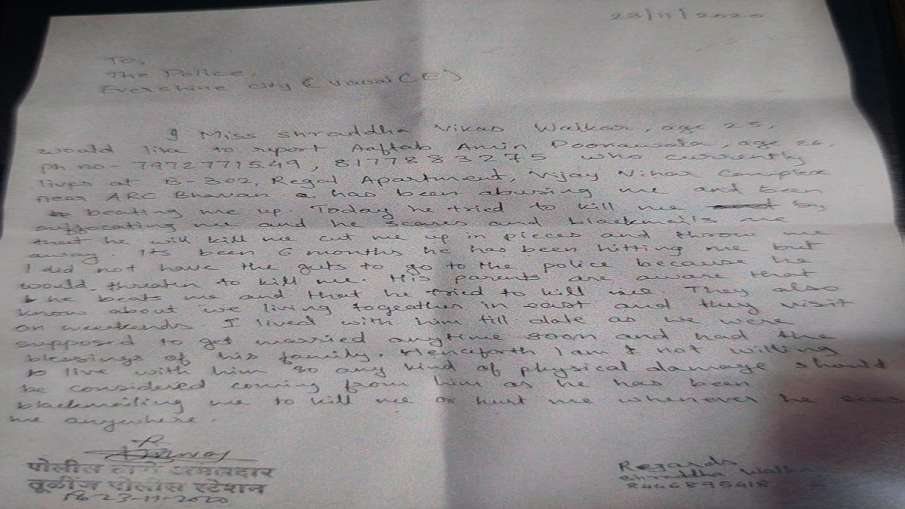 23/11/2020
To,
The Police,
Evershine city (Vasai (E)
I Miss Shraddha Vikas Walkar, age 25,
would like to report Aaftab Amin Poonawala, age 26,
ph no - 7972771549, 8177883275 who currently
lives at B-302, Regal Apartment, Vijay Vihar Complex
near ARC Bhavan & has been abusing me and been
beating me up. Today he tried to kill me by
suffocating me and he scares and blackmails me
that he will kill me cut me up in pieces and throw me
away. Its been 6 months he has been hitting me but
I did not have the guts to go to the police because he
would threaten to kill me. His parents are aware that
he beats me and that he tried to kill me They also
know about we living together in and they visit
on weekends. I lived with him till date as we were
supposed to get married anytime soon and had the
blessings of his family. Henceforth I am not willing
to live with him so any kind of physical damage should
be considered coming from him as he has been
blackmailing me to kill me or hurt me whenever he sees
me anywhere.
Regards
Shraddha Walkar
8446895418
पोलीस ठाणे अंमलदार
तुळींज पोलीस स्टेशन
23-11-2020